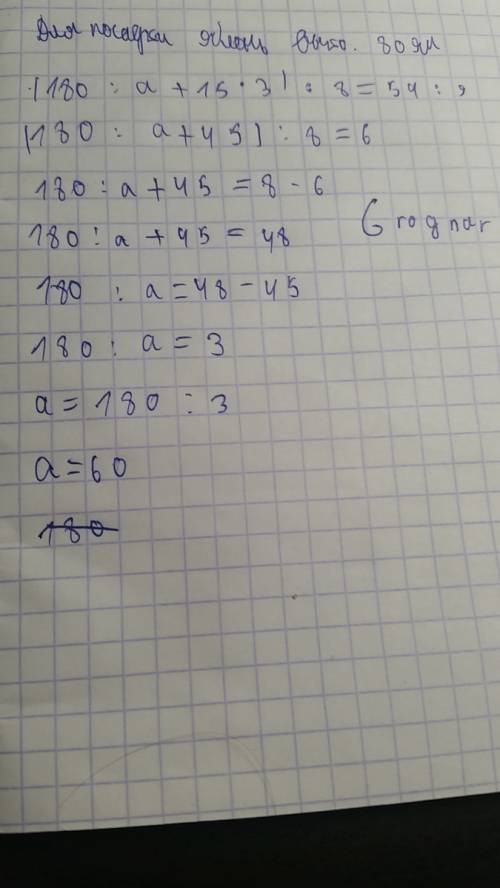 Для посадки яблонь выко. 80 ям
(180 : a + 15 · 3) : 8 = 54 : 9
(180 : a + 45) : 8 = 6
180 : a + 45 = 8 - 6
180 : a + 45 = 48
180 : a = 48 - 45
180 : a = 3
a = 180 : 3
a = 60
180
Grognar